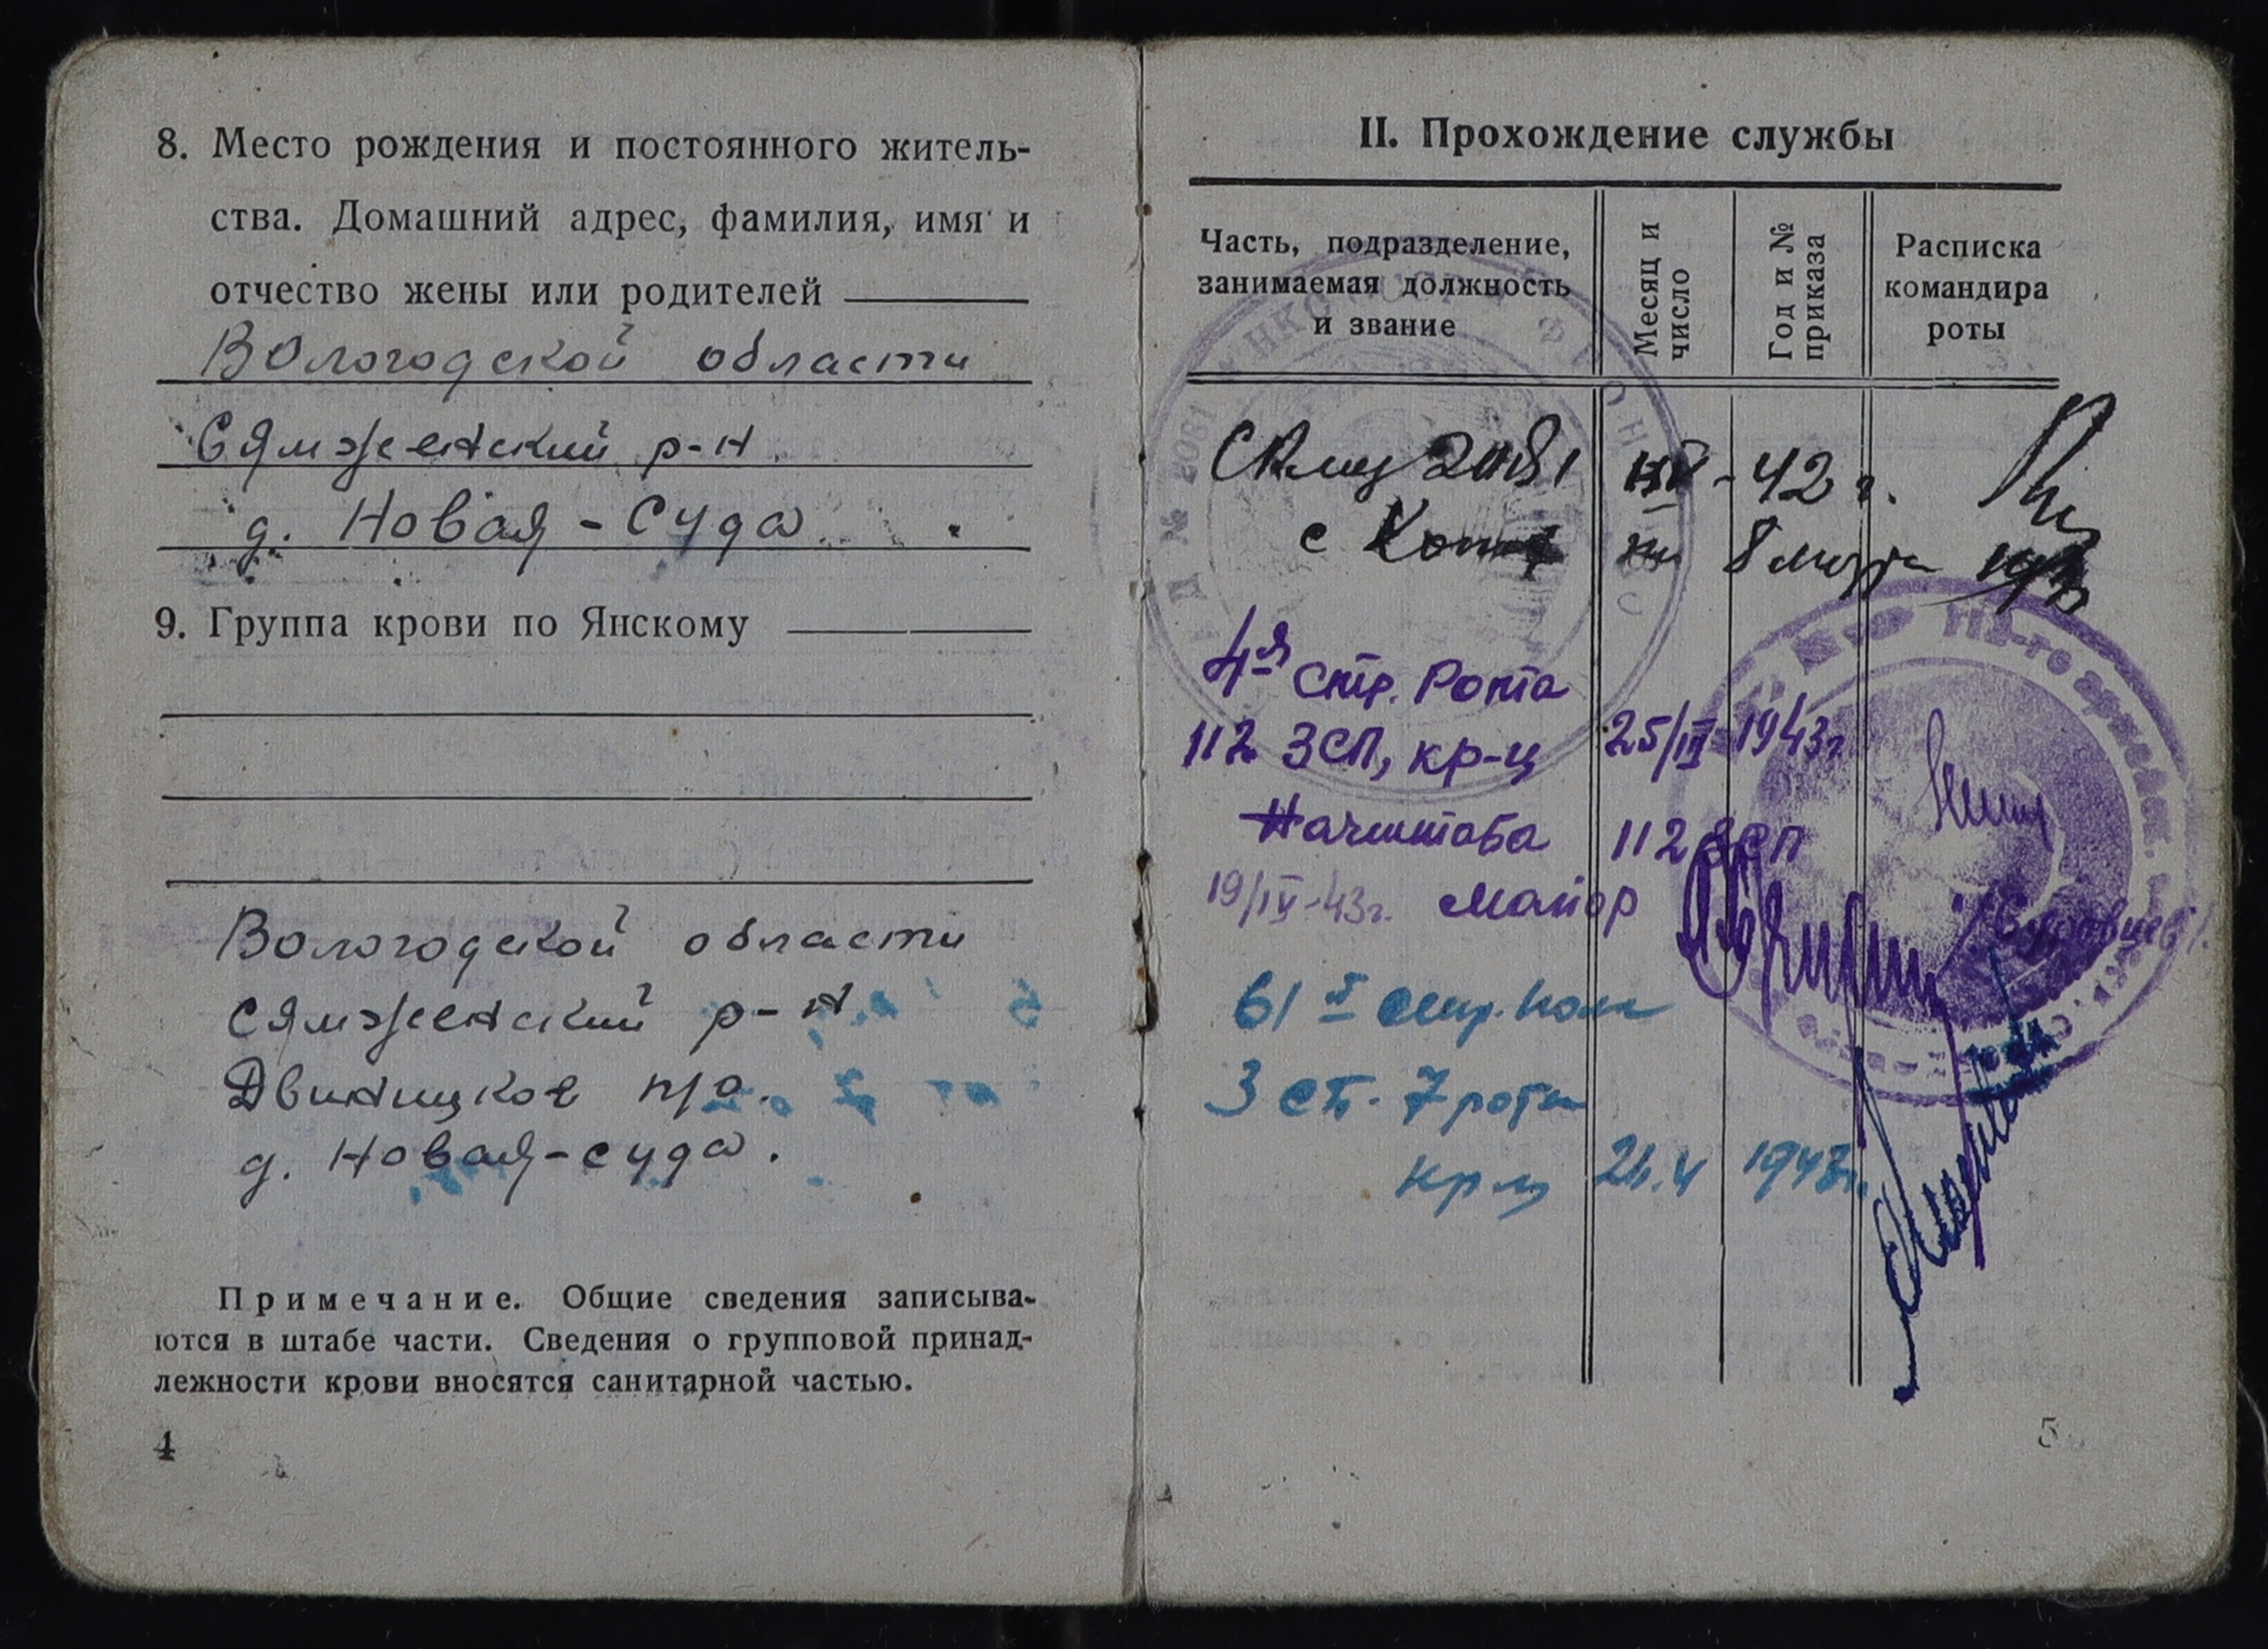 8. Место рождения и постоянного житель-
ства. Домашний адрес, фамилия, имя и
отчество жены или родителей
Вологодской области
Сямженский р-н.
д. Новая-Суда.
9. Группа крови по Янскому
Вологодской области
Сямженский р-н
Двиницкое п/о.
д. Новая-Суда.
Примечание. Общие сведения записыва-
ются в штабе части. Сведения о групповой принад-
лежности крови вносятся санитарной частью.
4
II. Прохождение службы
Часть, подразделение,
занимаемая должность
и звание
Месяц и
число
Год и №
приказа
Расписка
командира
роты
42 г.
с 8 марта
4я стр. Рота
112 ЗСП, кр-ц 25/III 1943г.
Начштаба 112 ЗСП
19/IV-43г. майор
61
3 7 рота
кр-ц 1943г.
5